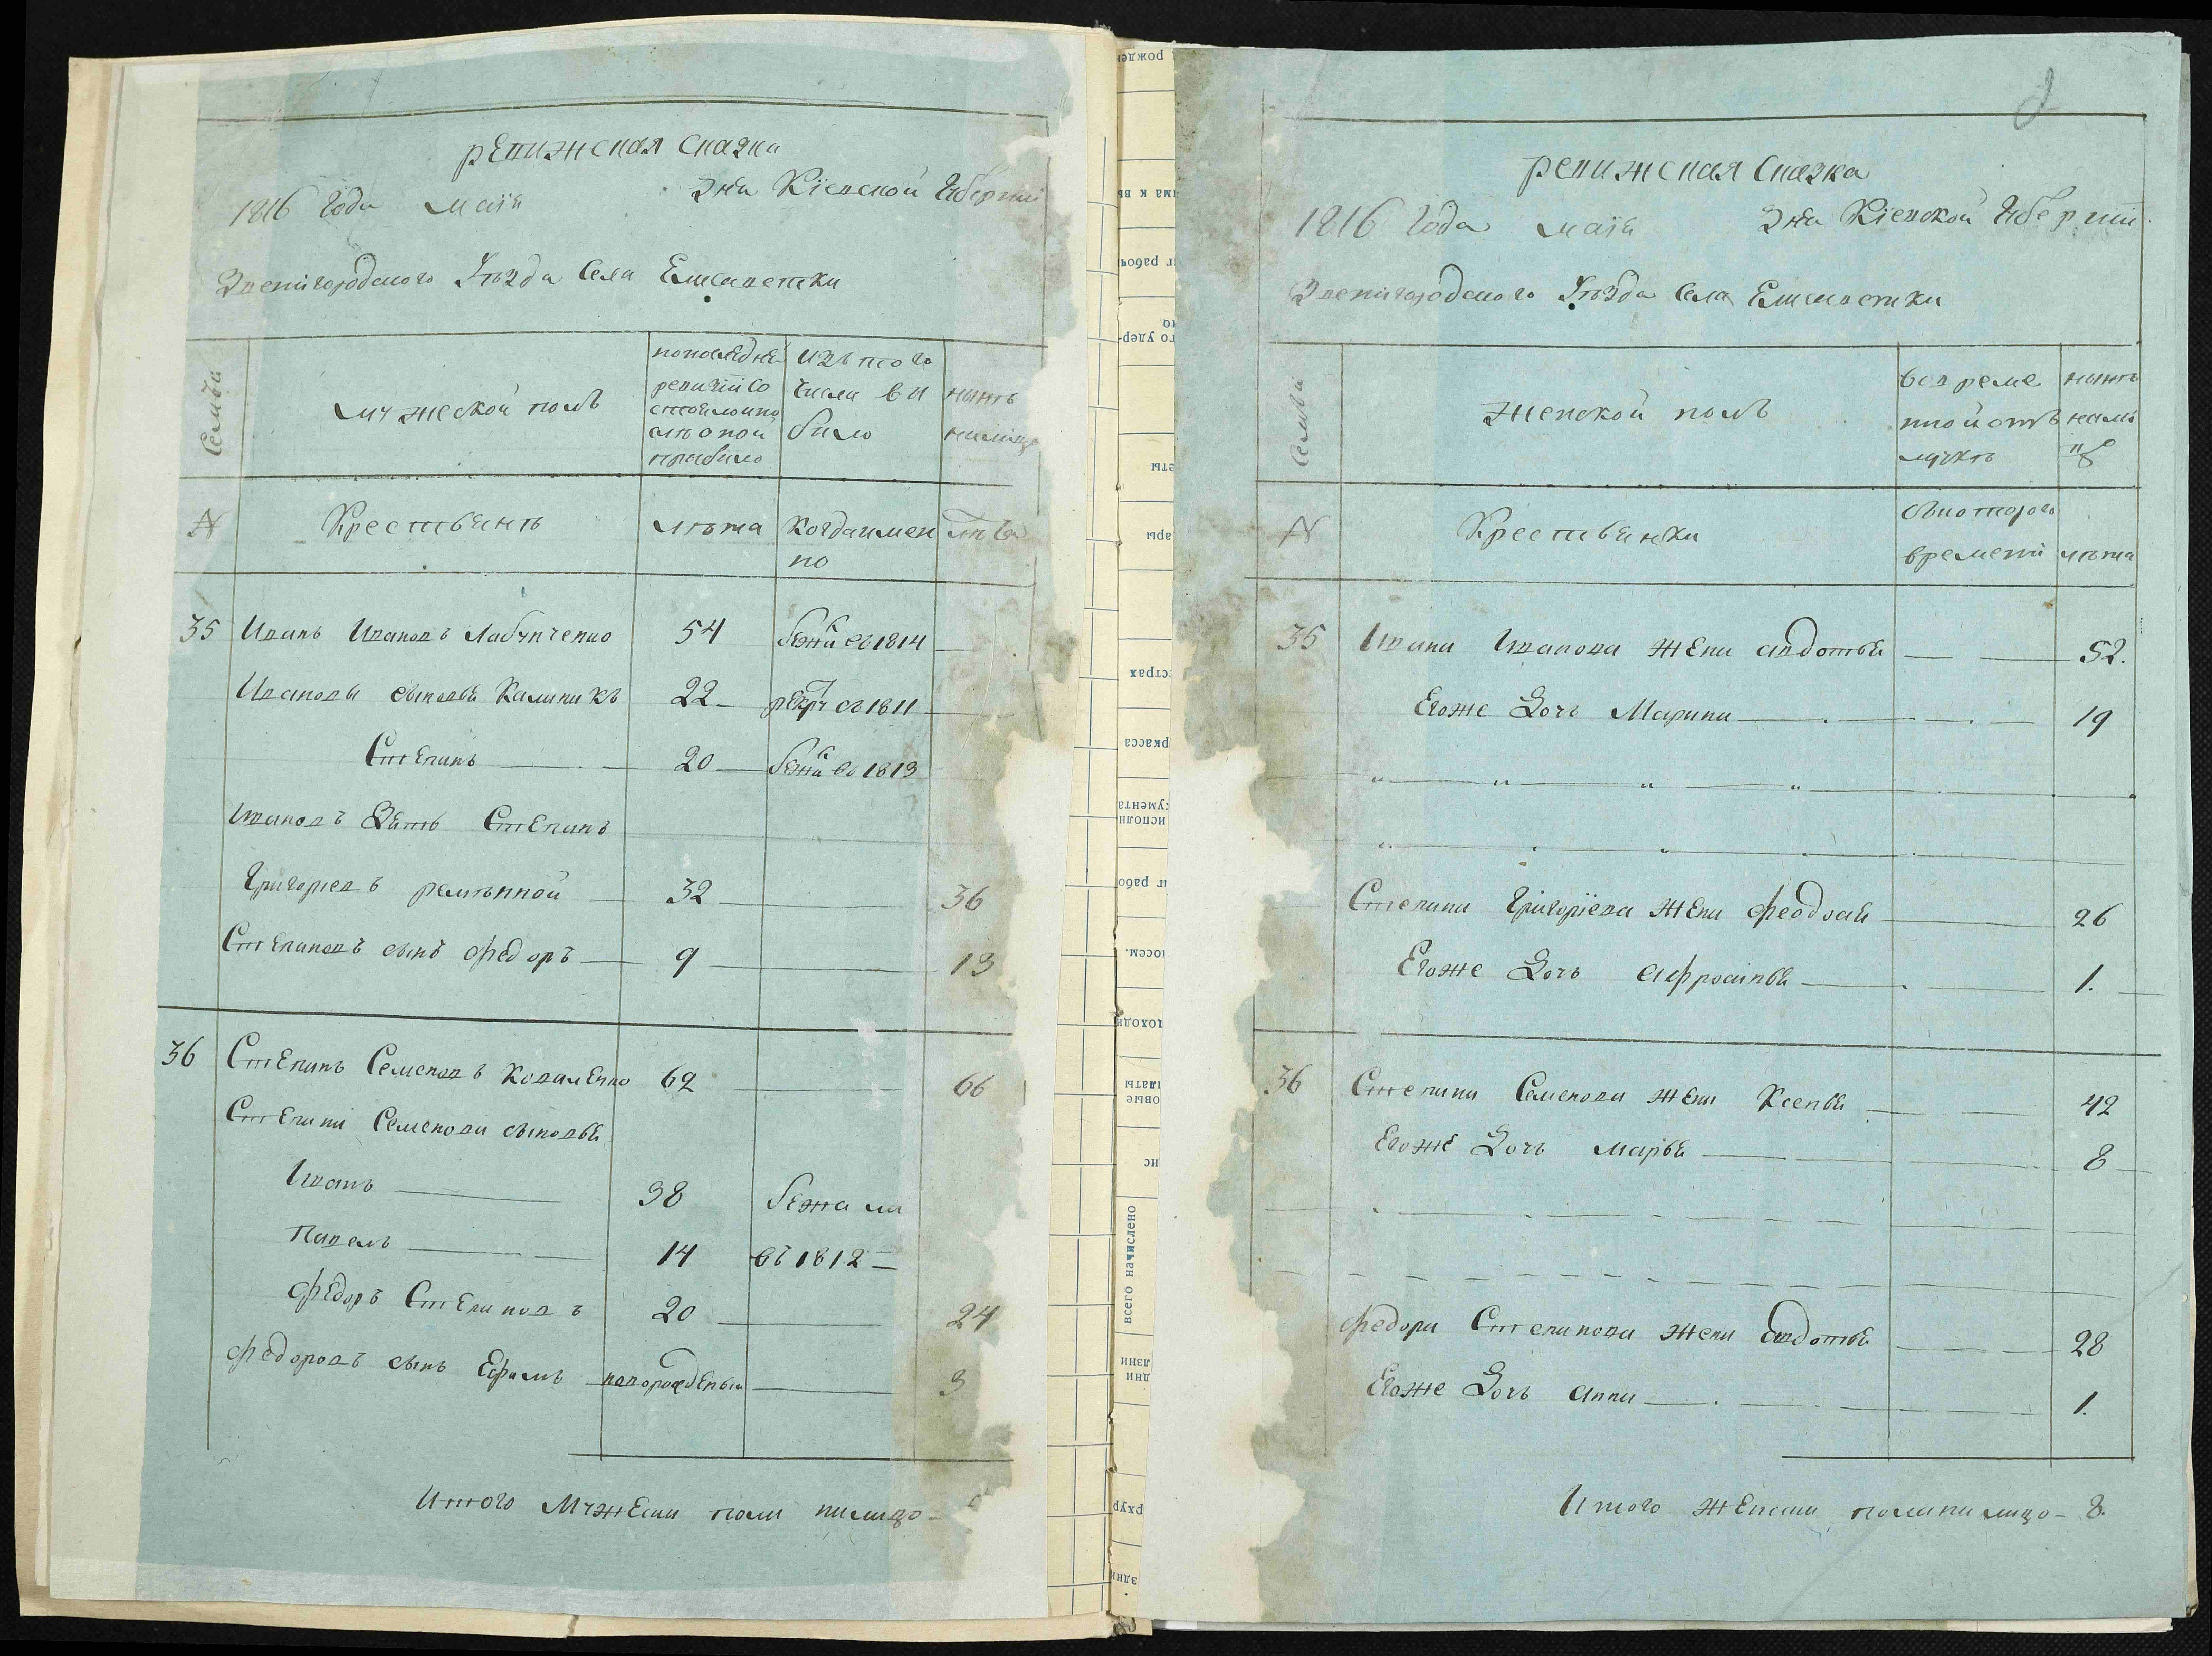 ревижская сказка
1816 года маія дня Кіевской Губерніи
Звенигородского уѣзда Села Елисаветки
Семьи
мужеской полъ
по последней ревизіи состояло и после оной прибыло
изъ того числа выбыло
нынѣ налицо
№
Крестьянѣ
лѣта
когда имен но
лѣта
35 Иванъ Ивановъ Лабунченко 54 бежа въ 1814
Ивановы сыновья Калиникъ 22 рекру въ 1811
Степанъ 20 бежа въ 1813
Ивановъ зять Степанъ
Григориевъ 32 36
Степановъ сынъ Федоръ 9 13
36 Степанъ Семеновъ Коваленко 62 66
Степана Семенова сыновья
Иванъ 38 бежали
Павелъ 14 въ 1812
Федоръ Степановъ 20 24
Федоровъ сынъ Ефимъ новорожденый 3
Итого мужеска пола налицо
ревижская сказка
1816 года маія дня Кіевской Губерніи
Звенигородского уѣзда Села Елисаветки
Семьи
женской полъ
во време нной отъ лучкѣ
нынѣ
№
Крестьянки
съ которого времени
лѣта
35 Ивана Иванова жена авдотья 52.
Егоже Дочь Марина 19
Степана Григоріева жена феодосія 26
Егоже Дочь афросінья 1.
36 Степана Семенова жена Ксенья 42
Егоже Дочь марья 8
Федора Степанова жена Евдотья 28
Егоже Дочь анна 1.
Итого женска пола налицо - 8.
рожден
всего начислено